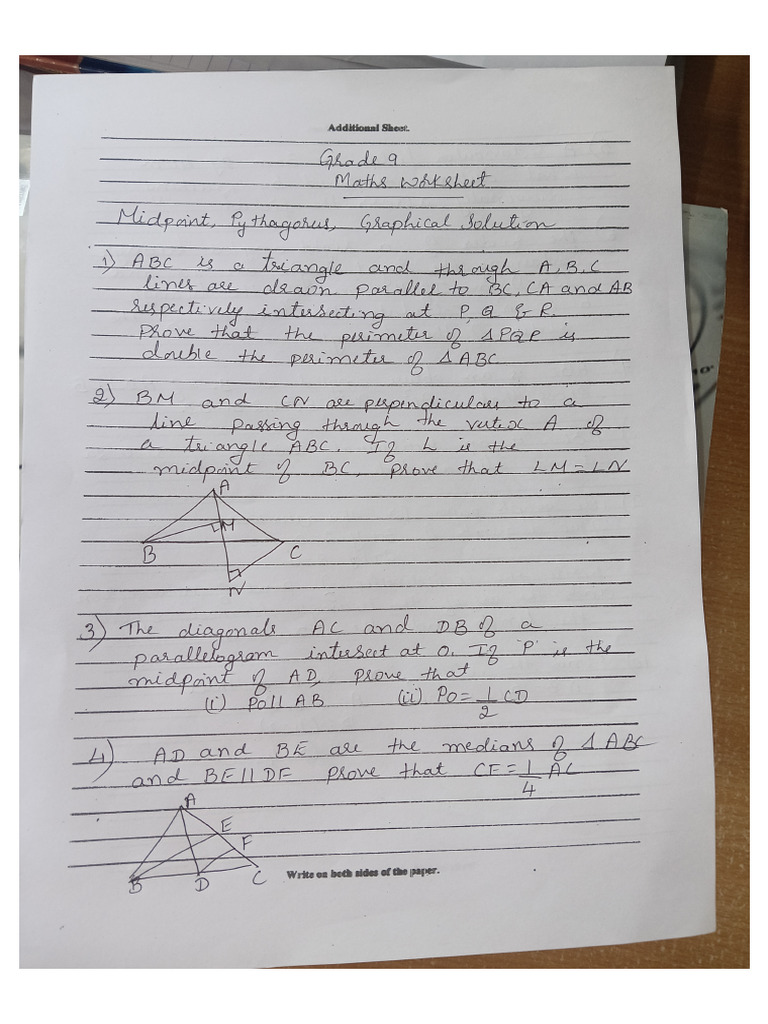 Additional Sheet.
Grade 9
Maths Worksheet
Midpoint, Pythagorus, Graphical Solution
1) ABC is a triangle and through A, B, C
lines are drawn parallel to BC, CA and AB
respectively intersecting at P, Q & R.
Prove that the perimeter of ΔPQR is
double the perimeter of ΔABC
2) BM and CN are perpendiculars to a
line passing through the vertex A of
a triangle ABC. If L is the
midpoint of BC, prove that LM=LN
A
M
B
C
N
3) The diagonals AC and DB of a
parallelogram intersect at O. If 'P' is the
midpoint of AD, prove that
(i) PO||AB (ii) PO=1/2 CD
4) AD and BE are the medians of ΔABC
and BE||DF prove that CF=1/4 AC
A
E
F
B D C
Write on both sides of the paper.